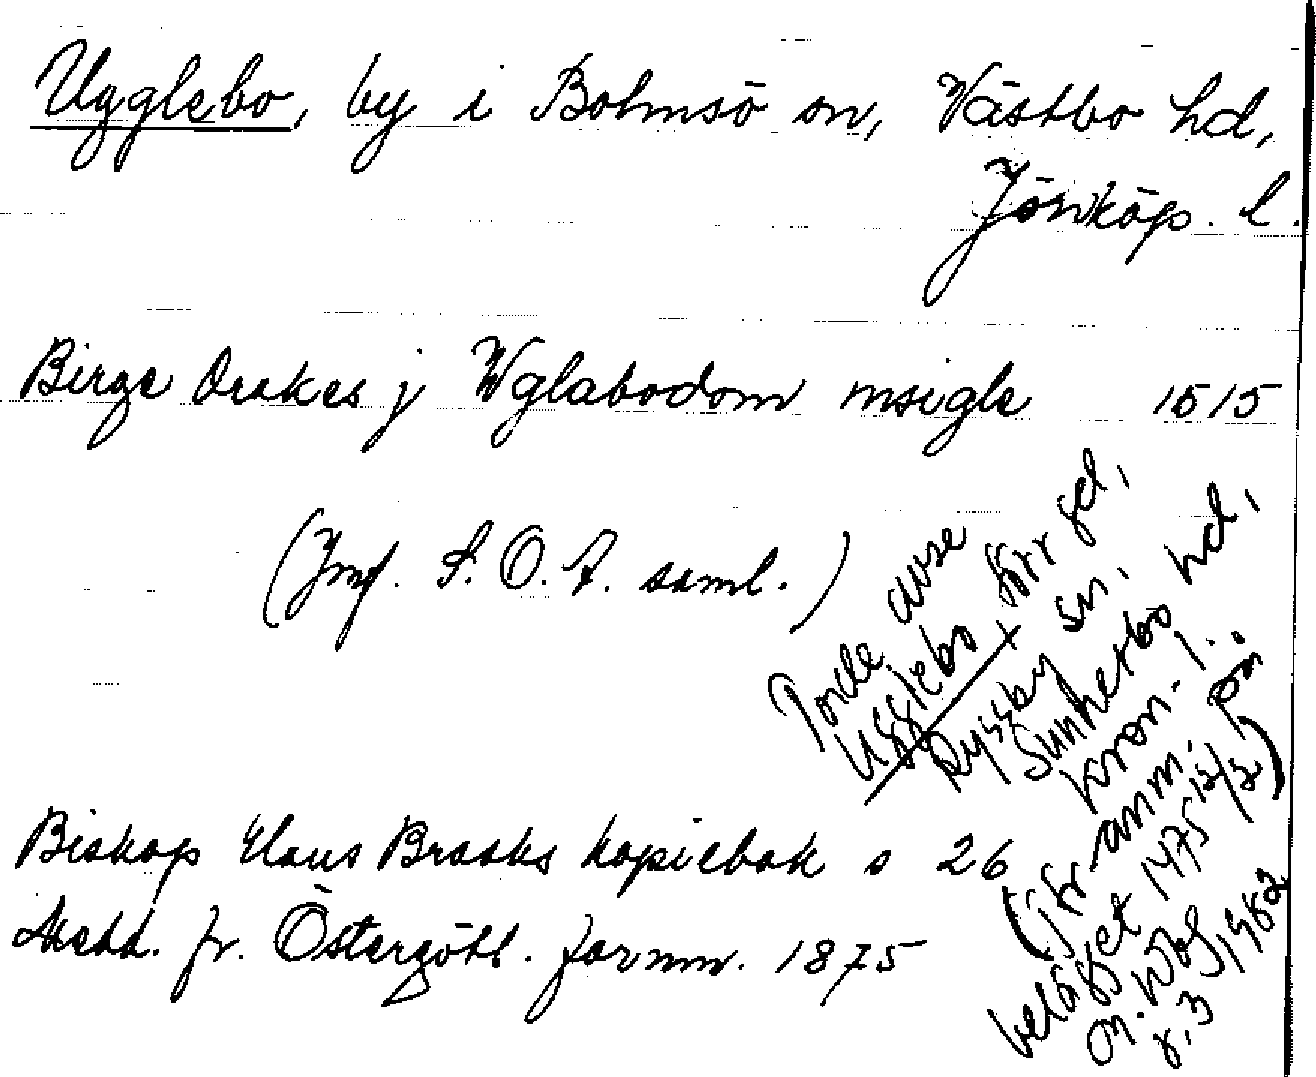 Ugglebo, by i Bolmsö sn, Västbo hd,
Jönköp. l.
Birge Drakes j Wglabodom msigle 1515
(Jmf. S. O. A. saml.)
Biskop Hans Brasks kopiebok s 26
Medd. fr. Östergötl. fornm. 1875
Torde avse
Ugglebo, förr gd,
Ryssby sn.
Sunnerbo hd,
Kron. l.
(jfr anm. på
belägget 1475 12/3)
O. Wbg
r. 3 1982